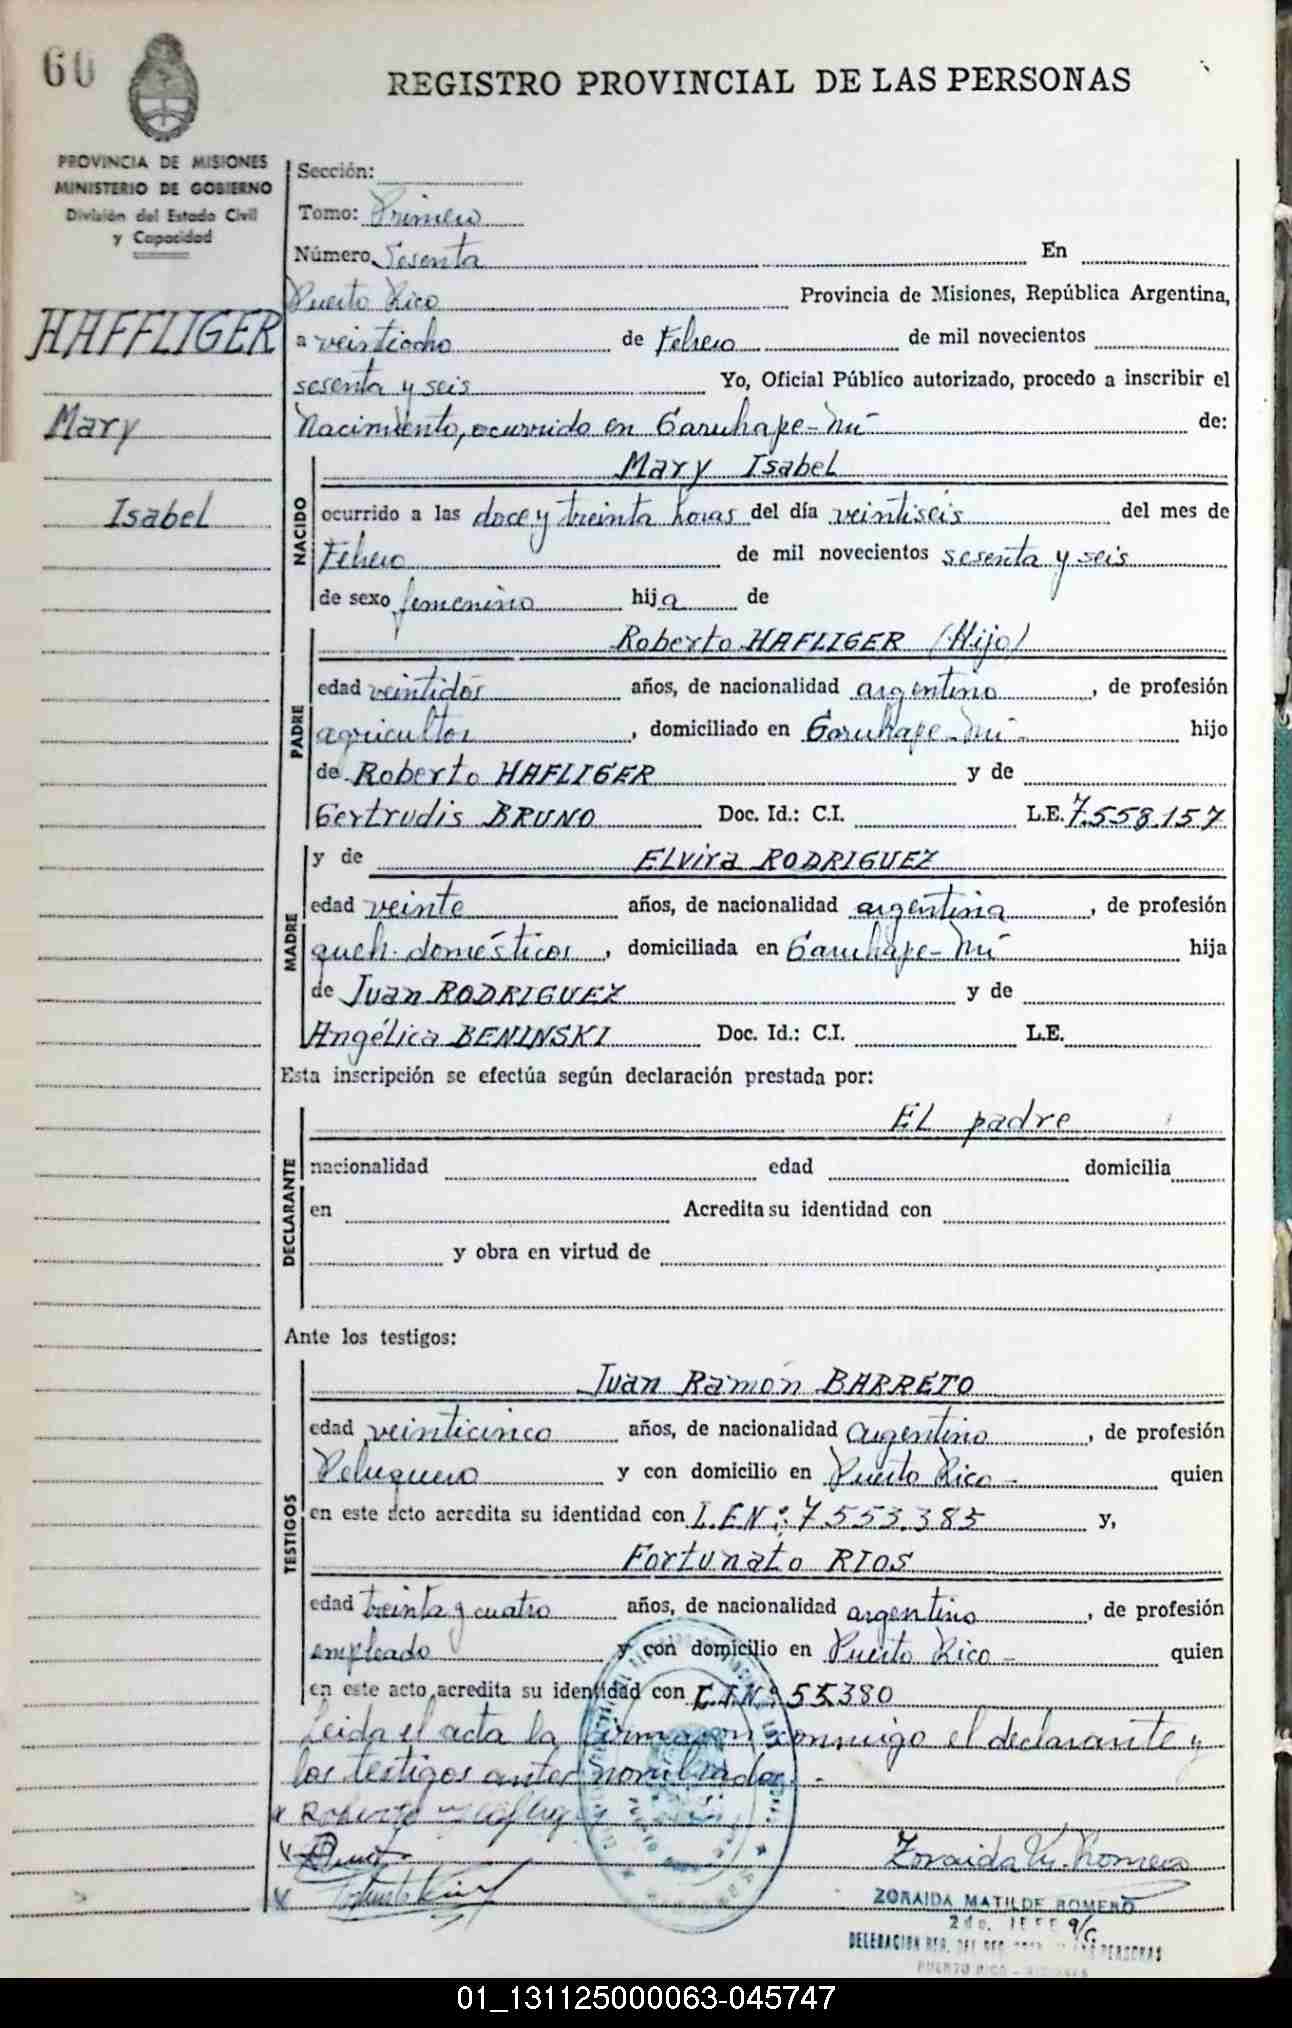 60
REGISTRO PROVINCIAL DE LAS PERSONAS
PROVINCIA DE MISIONES
MINISTERIO DE GOBIERNO
División del Estado Civil
y Capacidad
HAFFLIGER
Mary
Isabel
Sección:
Tomo: Primero
Número Sesenta En
Puerto Rico Provincia de Misiones, República Argentina,
a veintiocho de Febrero de mil novecientos
sesenta y seis Yo, Oficial Público autorizado, procedo a inscribir el
Nacimiento, ocurrido en Garuhape-Mí de:
NACIDO
Mary Isabel
ocurrido a las doce y treinta horas del día veintiseis del mes de
Febrero de mil novecientos sesenta y seis
de sexo femenino hija de
PADRE
Roberto HAFLIGER (Hijo)
edad veintidós años, de nacionalidad argentino, de profesión
agricultor, domiciliado en Garuhape-Mí- hijo
de Roberto HAFLIGER y de
Gertrudis BRUNO Doc. Id.: C.I. L.E. 7.558.157
MADRE
y de Elvira RODRIGUEZ
edad veinte años, de nacionalidad argentina, de profesión
queh. domésticos, domiciliada en Garuhape-Mí hija
de Juan RODRIGUEZ y de
Angélica BENINSKI Doc. Id.: C.I. L.E.
Esta inscripción se efectúa según declaración prestada por:
DECLARANTE
El padre
nacionalidad edad domicilia
en Acredita su identidad con
y obra en virtud de
Ante los testigos:
TESTIGOS
Juan Ramón BARRETO
edad veinticinco años, de nacionalidad argentino, de profesión
Peluquero y con domicilio en Puerto Rico- quien
en este acto acredita su identidad con L.E.Nº: 7.553.385 y,
Fortunato RIOS
edad treinta y cuatro años, de nacionalidad argentino, de profesión
empleado y con domicilio en Puerto Rico- quien
en este acto acredita su identidad con C.I.Nº: 55.380
Leida el acta la firmaron conmigo el declarante y
los testigos antes nombrados.-
x Roberto
Zoraida M. Romero
ZORAIDA MATILDE ROMERO
2do. JEFE
DELEGACION PERSONAS
PUERTO RICO - MISIONES
01_131125000063-045747